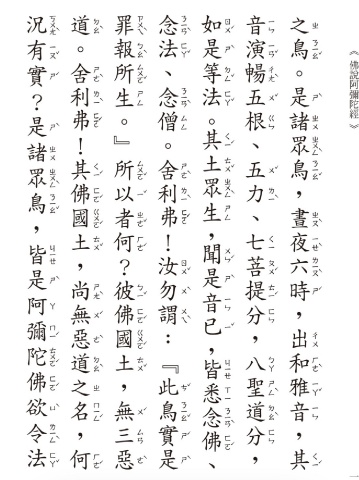 《佛說阿彌陀經》
之鳥。是諸眾鳥，晝夜六時，出和雅音，其
音演暢五根、五力、七菩提分，八聖道分，
如是等法。其土眾生，聞是音已，皆悉念佛、
念法、念僧。舍利弗！汝勿謂：『此鳥實是
罪報所生。』所以者何？彼佛國土，無三惡
道。舍利弗！其佛國土，尚無惡道之名，何
況有實？是諸眾鳥，皆是阿彌陀佛欲令法